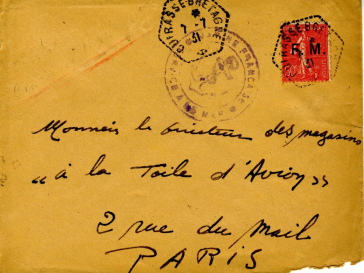 CUIRASSE BRETAGNE
7 - 7
31
FRANÇAISE
CUIRASSE BRETAGNE
31
F. M.
Monsieur le directeur des magasins
"à la Toile d'Avion"
2 rue du Mail
PARIS